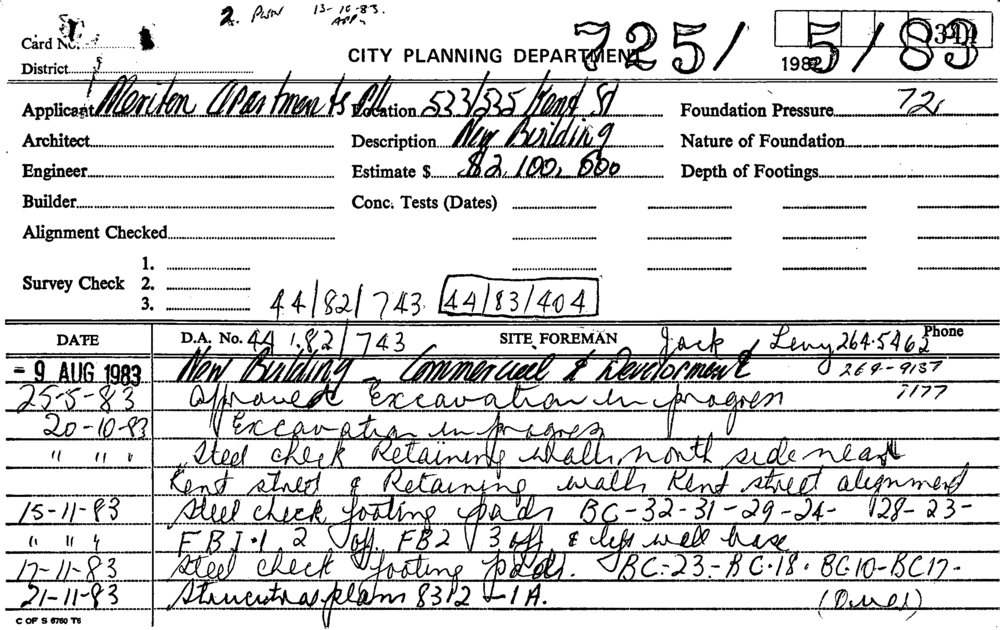 2. 13-10-83.
Card No.
District
CITY PLANNING DEPARTMENT
725/ 5/83
1982
Applicant Meriton Apartments P/L Location 533/535 Kent St Foundation Pressure 72
Architect Description New Building Nature of Foundation
Engineer Estimate $ $2,100,000 Depth of Footings
Builder Conc. Tests (Dates)
Alignment Checked
Survey Check 1.
2.
3.
44/82/743 44/83/404
DATE D.A. No. 44/82/743 SITE FOREMAN Jack Levy 264-5462 Phone
- 9 AUG 1983 New Building - Commercial & Development 269-9137
7177
25-5-83 Approved Excavation in progress
20-10-83 Excavation in progress
" " " Steel check Retaining walls, north side near
Kent street & Retaining walls Kent street alignment
15-11-83 Steel check footing pads BC-32-31-29-24- 28-23-
" " " FBJ.1 2 off. FB2 3 off & wall base
17-11-83 Steel check footing pads. BC-23-BC-18. BC10-BC17-
21-11-83 plans 8312 -1A. (Over)
C OF S 6760 T6